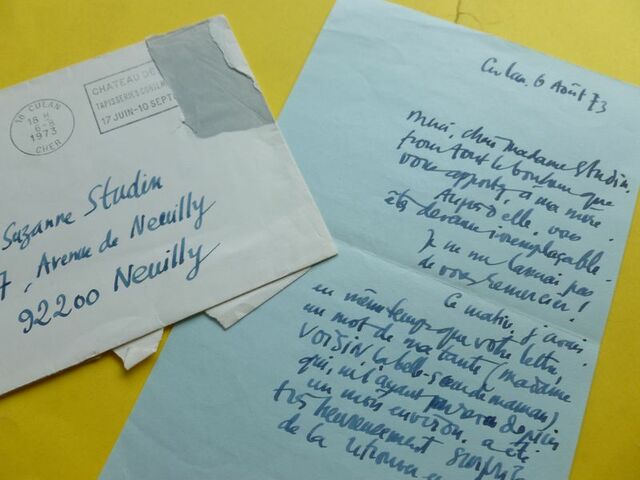 18 CULAN
18 H
6-8
1973
CHER
CHATEAU DE
TAPISSERIES
17 JUIN-10 SEPT
Suzanne Studin
7, Avenue de Neuilly
92200 Neuilly
Culan. 6 Août 73
Merci, chère Madame Studin,
pour tout le bonheur que
vous apportez à ma mère.
Auprès d'elle, vous
êtes devenue irremplaçable.
Je ne me lasserai pas
de vous remercier!
Ce matin, j'avais
en même temps que votre lettre
un mot de ma tante (Madame
VOISIN, la belle-sœur de maman)
qui, ne l'ayant pas revue depuis
un mois environ, a été
très heureusement surprise
de la retrouver